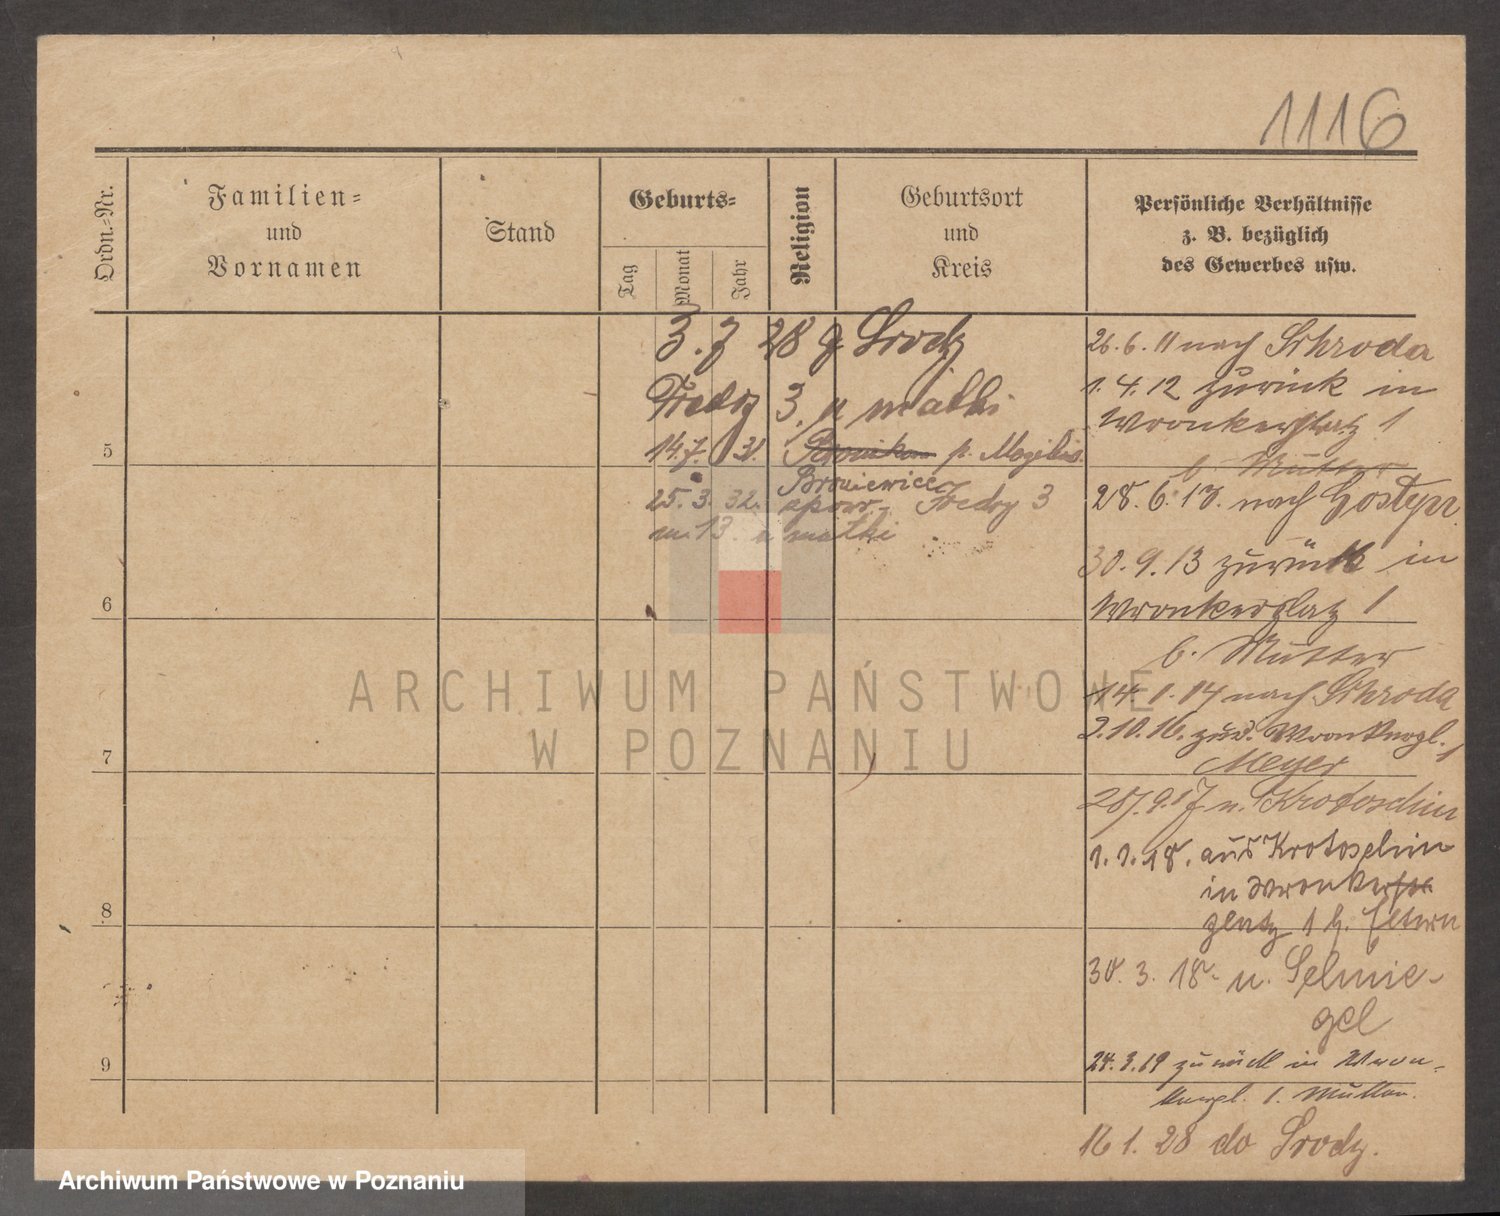 1116
Ordn.-Nr.
Familien-
und
Vornamen
Stand
Geburts-
Tag
Monat
Jahr
Religion
Geburtsort
und
Kreis
Persönliche Verhältnisse
z. B. bezüglich
des Gewerbes usw.
3. 7 28 z Środy
Fredry 3. u matki
14.7. 31. p. Mogilno
Broniewice
25. 3. 32. spowr. Fredry 3
m. 13. u matki
26. 6. 11 nach Schroda
1. 4. 12 zurück in
Wronkerplatz 1
b. Mutter
28. 6. 13. nach Gostyn
30. 9. 13 zurück in
Wronkerplatz 1
b. Mutter
14. 1. 14 nach Schroda
2. 10. 16. zur. Wronkerpl. 1
Meyer
28. 9. 17 n. Krotoschin
1. 1. 18. aus Krotoschin
in Wronker
platz 1 b. Eltern
30. 3. 18. n. Schmie-
gel
24. 3. 19 zurück in Wron-
kerpl. 1. Mutter.
16 1. 28 do Środy.
5
6
7
8
9
ARCHIWUM PAŃSTWOWE
W POZNANIU
Archiwum Państwowe w Poznaniu